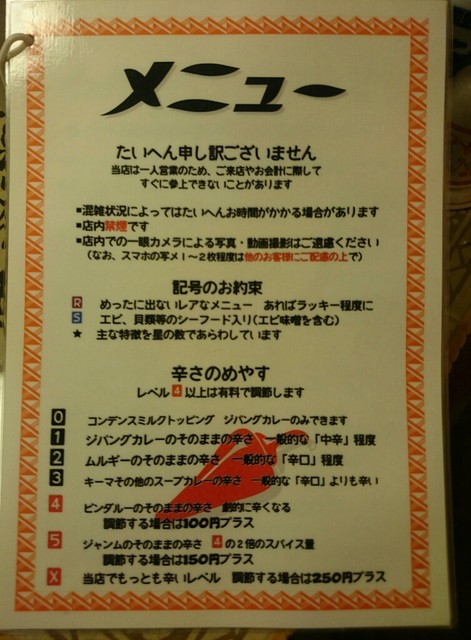 メニュー
たいへん申し訳ございません
当店は一人営業のため、ご来店やお会計に際して
すぐに参上できないことがあります
■混雑状況によってはたいへんお時間がかかる場合があります
■店内禁煙です
■店内での一眼カメラによる写真・動画撮影はご遠慮ください
(なお、スマホの写メ1~2枚程度は他のお客様にご配慮の上で)
記号のお約束
R めったに出ないレアなメニュー あればラッキー程度に
S エビ、貝類等のシーフード入り(エビ味噌を含む)
★ 主な特徴を星の数であらわしています
辛さのめやす
レベル4以上は有料で調節します
0 コンデンスミルクトッピング ジパングカレーのみできます
1 ジパングカレーのそのままの辛さ 一般的な「中辛」程度
2 ムルギーのそのままの辛さ 一般的な「辛口」程度
3 キーマその他のスープカレーの辛さ 一般的な「辛口」よりも辛い
4 ビンダルーのそのままの辛さ 劇的に辛くなる
調節する場合は100円プラス
5 ジャンムのそのままの辛さ 4の2倍のスパイス量
調節する場合は150円プラス
X 当店でもっとも辛いレベル 調節する場合は250円プラス